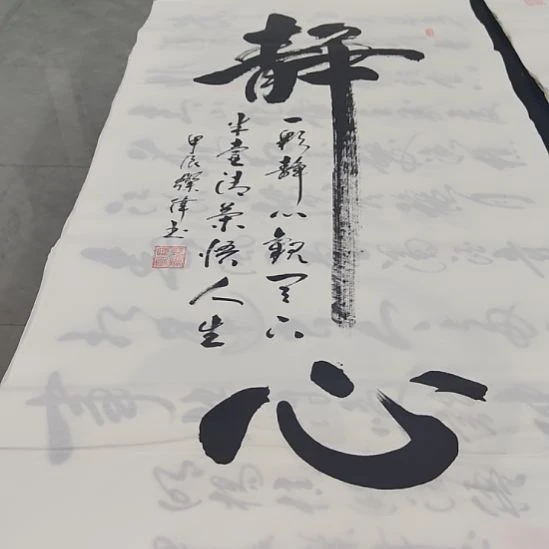 静心
一颗静心观天下
半壶清茶悟人生
甲辰 伟书